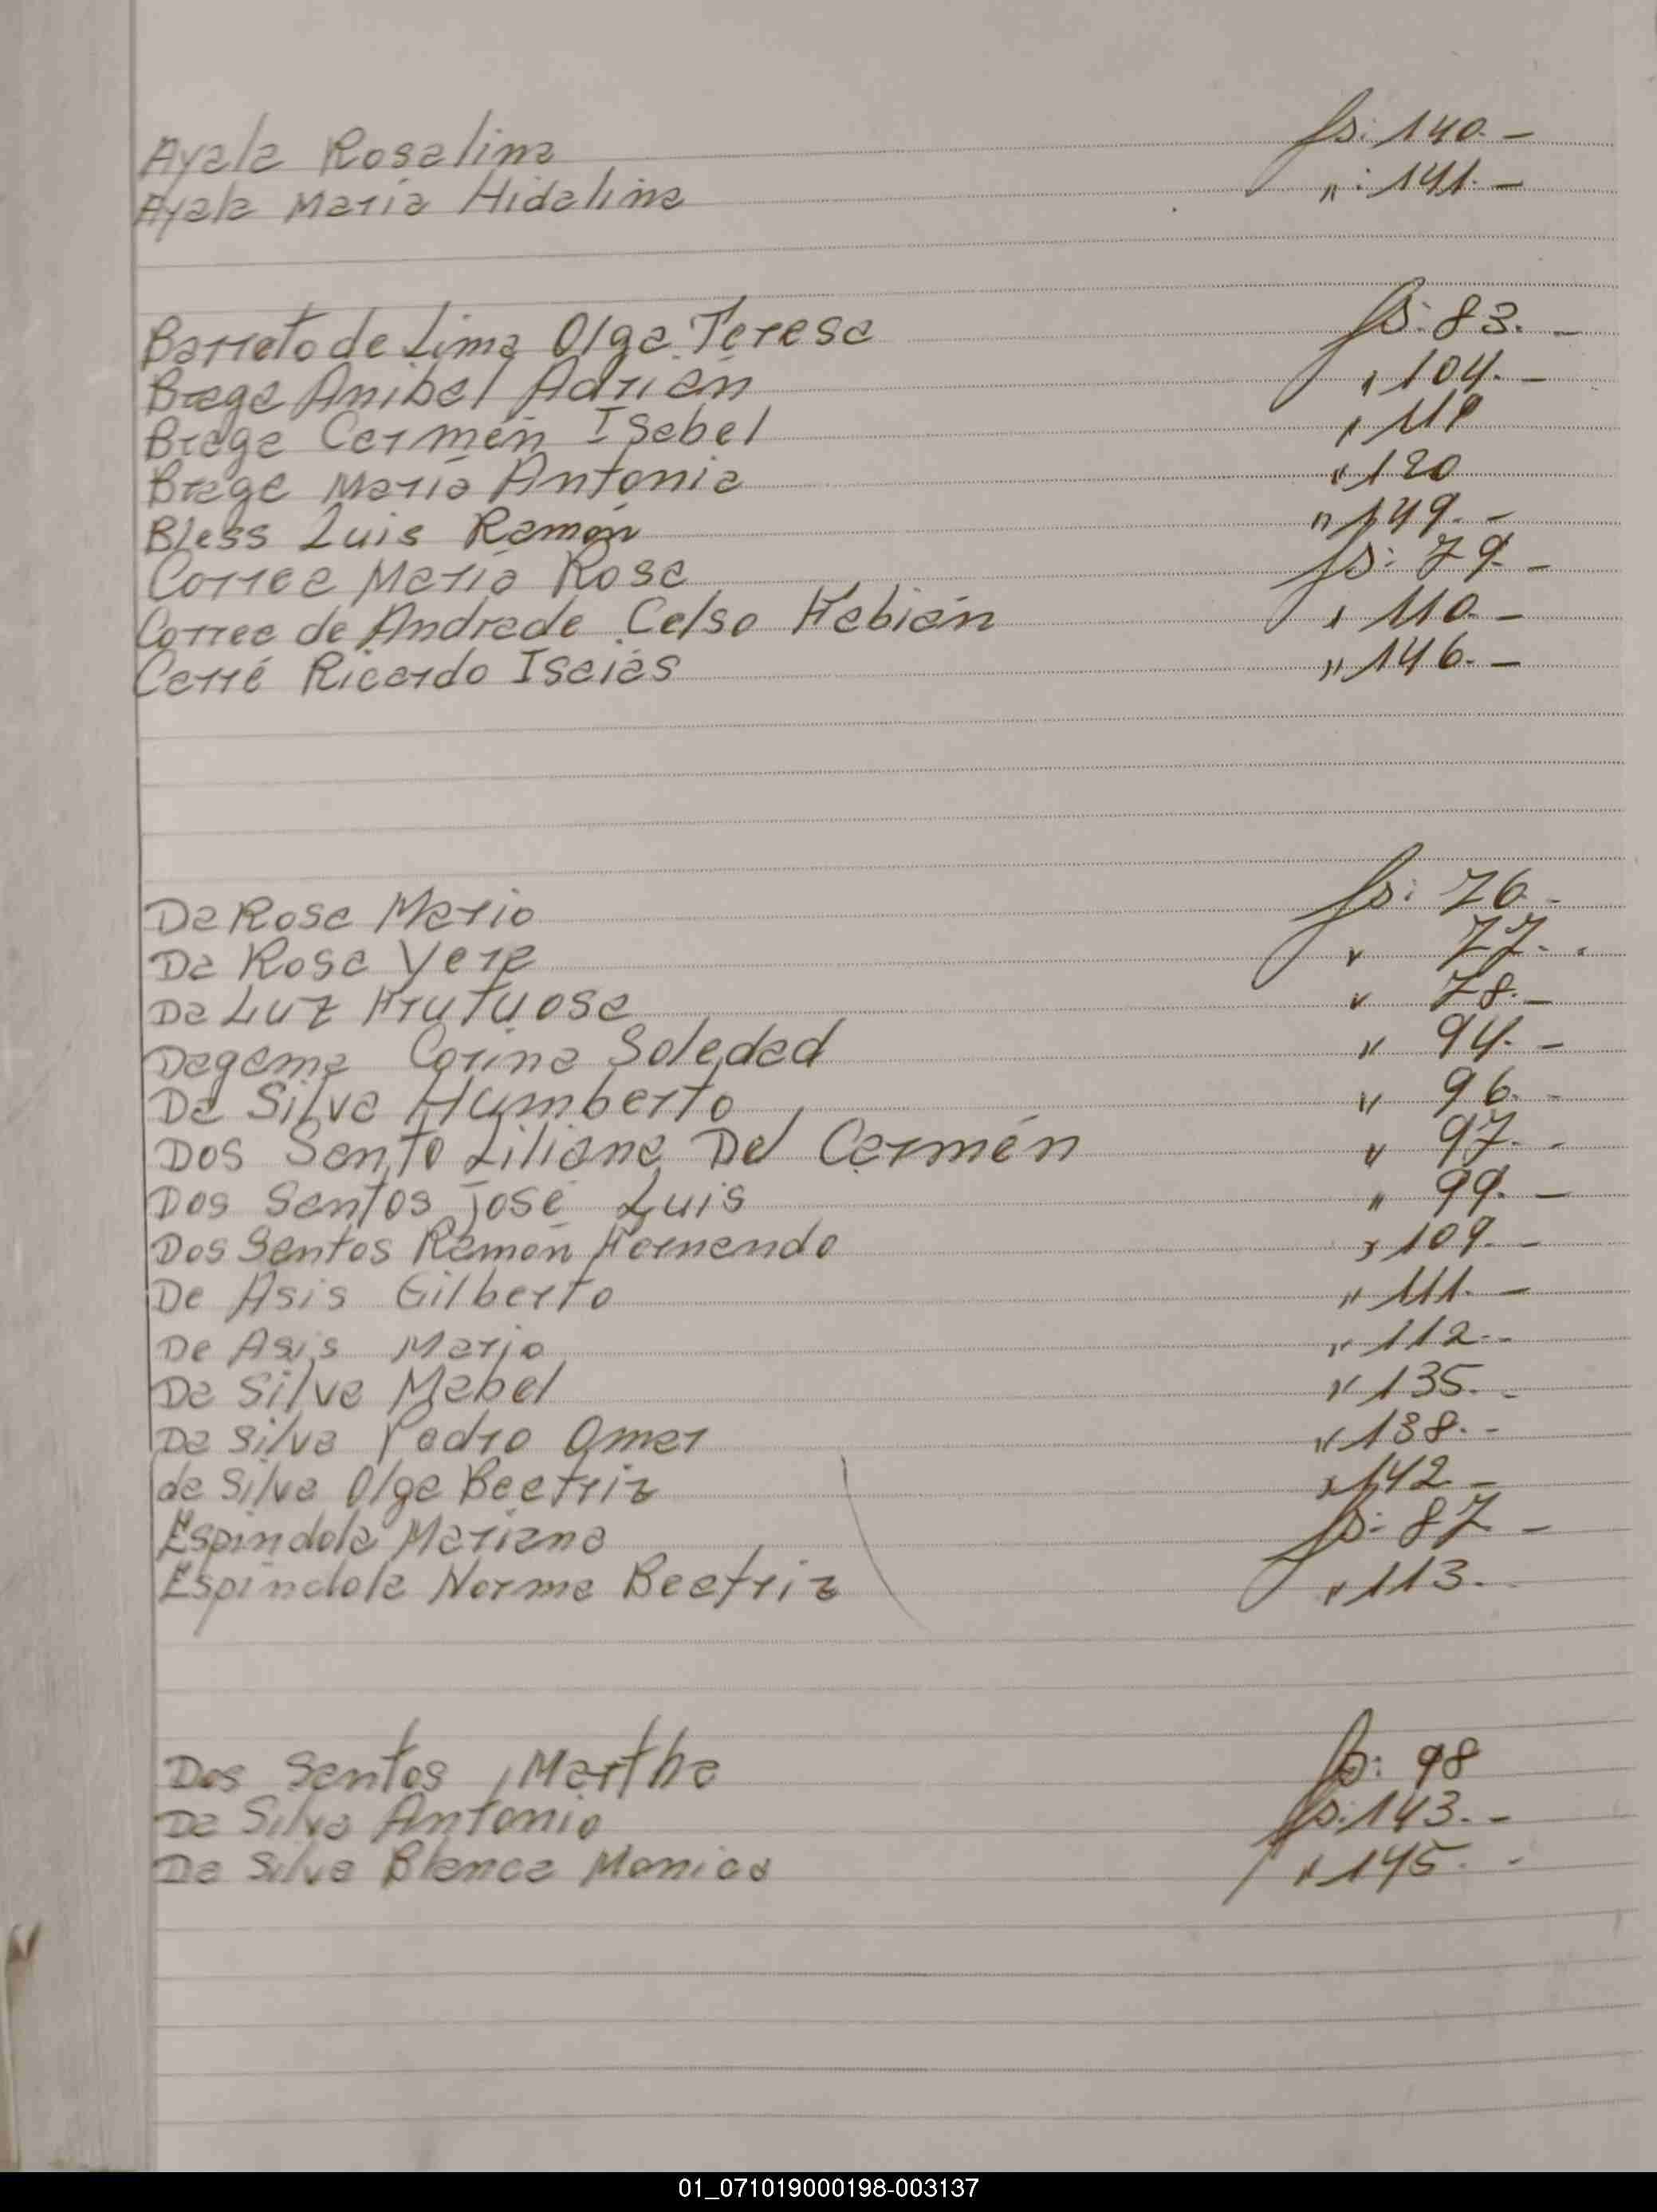 Ayala Rosalina fs: 140.-
Ayala Maria Hidalina ": 141.-
Barreto de Lima Olga Teresa fs: 83.-
Braga Anibal Adrián " 104.-
Braga Carmén Isabel "
Braga María Antonia " 120
Bless Luis Ramón " 149.-
Correa María Rosa fs: 79.-
Correa de Andrade Celso Fabián " 110.-
Carré Ricardo Isaías " 146.-
Da Rosa Mario fs: 76.-
Da Rosa Vera " 77.-
Da Luz Frutuosa " 78.-
Dagama Corina Soledad " 94.-
Da Silva Humberto " 96.-
Dos Santo Liliana Del Carmén " 97.-
Dos Santos José Luis " 99.-
Dos Santos Ramón Fernando " 109.-
De Asis Gilberto " 111.-
De Asis Mario " 112.-
Da Silva Mabel " 135.-
Da Silva Pedro Omar " 138.-
da Silva Olga Beatriz " 142-
Espindola Mariana fs: 87-
Espindola Norma Beatriz " 113.
Dos Santos, Martha fs: 98
Da Silva Antonio fs: 143.-
Da Silva Blanca Monica " 145.-
01_071019000198-003137